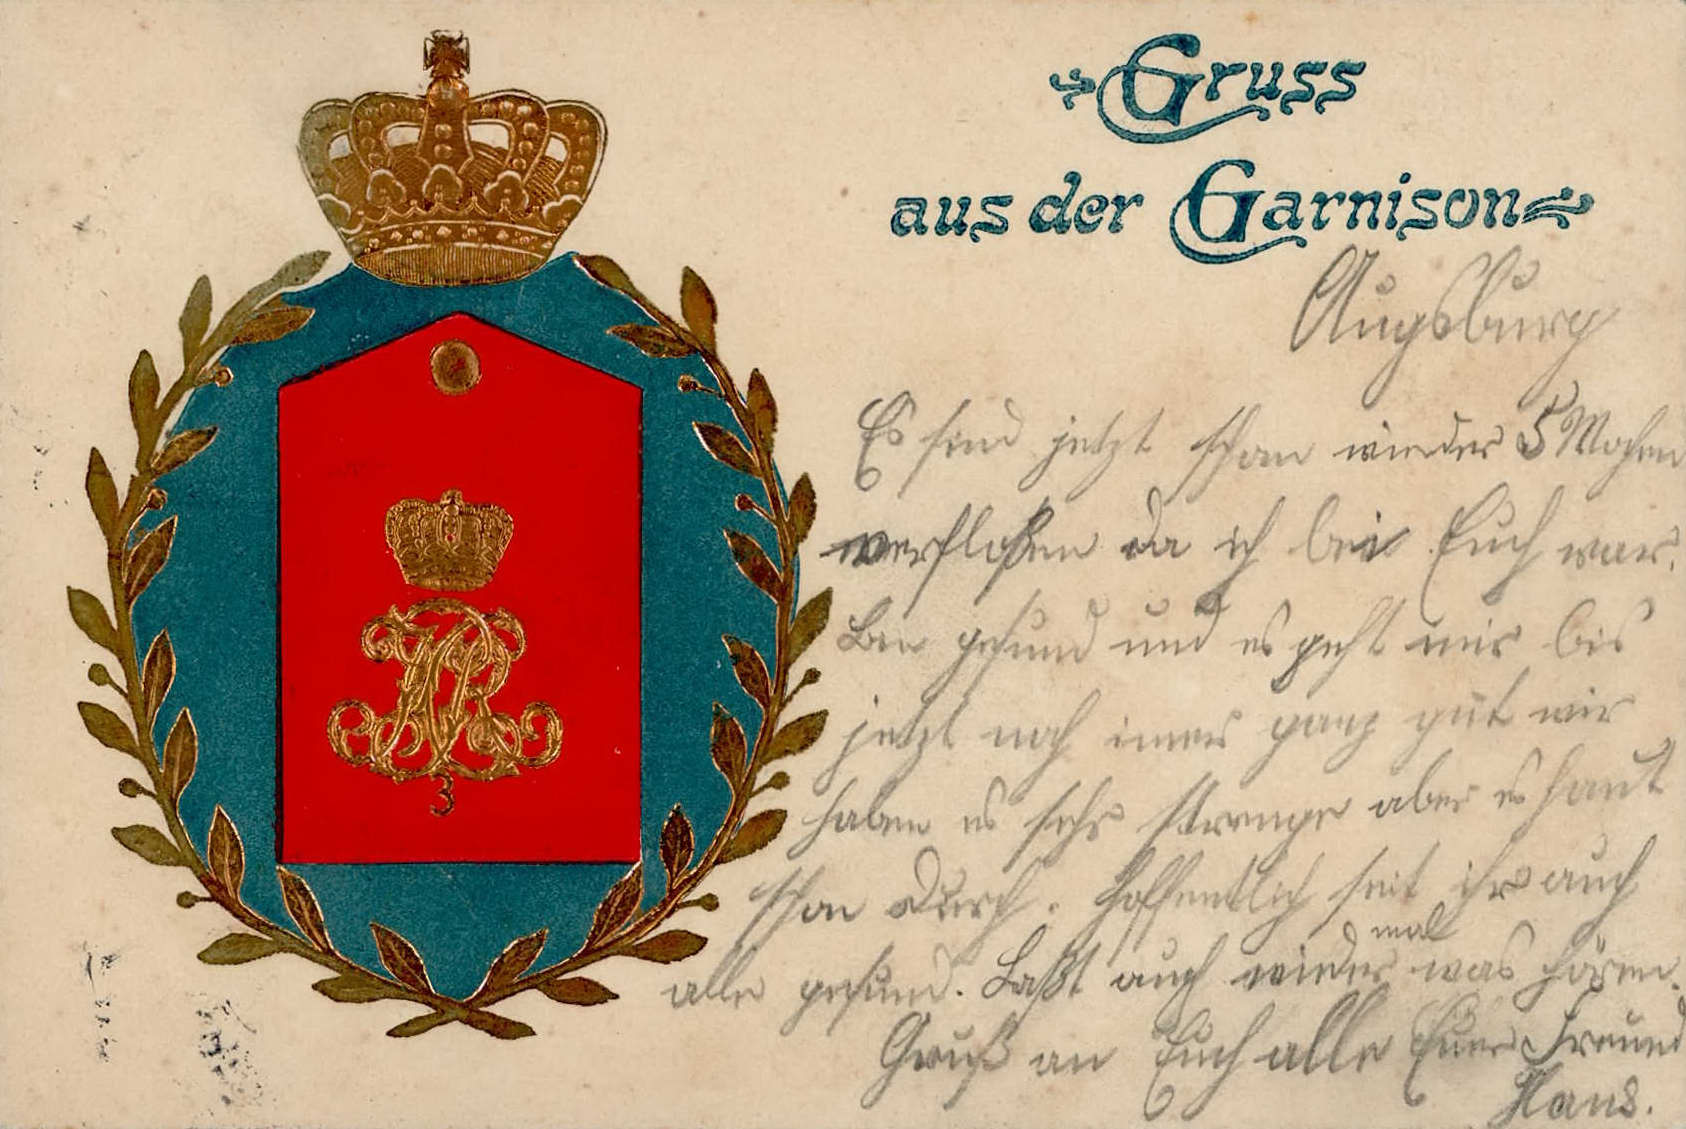 Gruss
aus der Garnison
Augsburg
Es sind jetzt schon wieder 5 Wochen
verfloßen da ich bei Euch war.
Bin gesund und es geht mir bis
jetzt noch imer ganz gut wir
haben es sehr strenge aber es haut
schon durch. Hoffentlich seit ihr auch
alle gesund. Laßt auch wieder mal was hören.
Gruß an Euch alle Euer Freund
Hans.
3